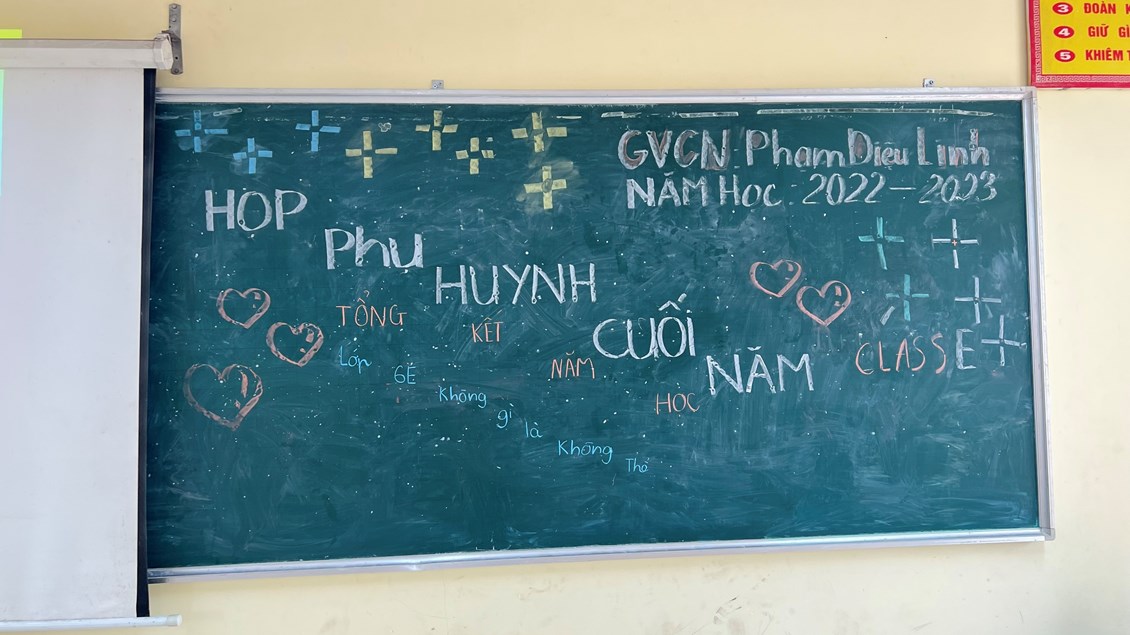 GVCN Phạm Diệu Linh
NĂM HỌC : 2022 – 2023
HỌP PHỤ HUYNH CUỐI NĂM
TỔNG KẾT NĂM HỌC
Lớp 6E Không gì là Không Thể
CLASS E
3 ĐOÀN K
4 GIỮ GÌ
5 KHIÊM T